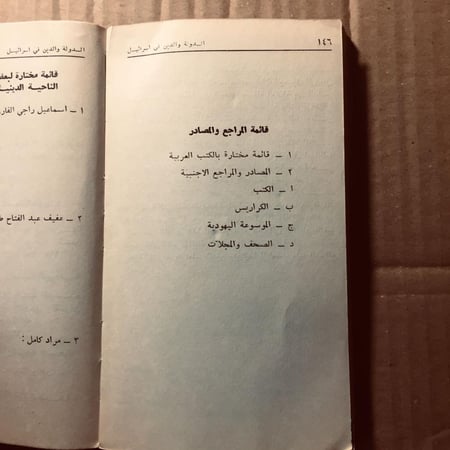 ١٤٦ الدولة والدين في اسرائيل
قائمة المراجع والمصادر
١ ــ قائمة مختارة بالكتب العربية
٢ ــ المصادر والمراجع الاجنبية
أ ــ الكتب
ب ــ الكراريس
ج ــ الموسوعة اليهودية
د ــ الصحف والمجلات
الدولة والدين في اسرائيل
قائمة مختارة لبعض
الناحية الدينية
١ ــ اسماعيل راجي
٢ ــ عفيف عبد الفتاح
٣ ــ مراد كامل :